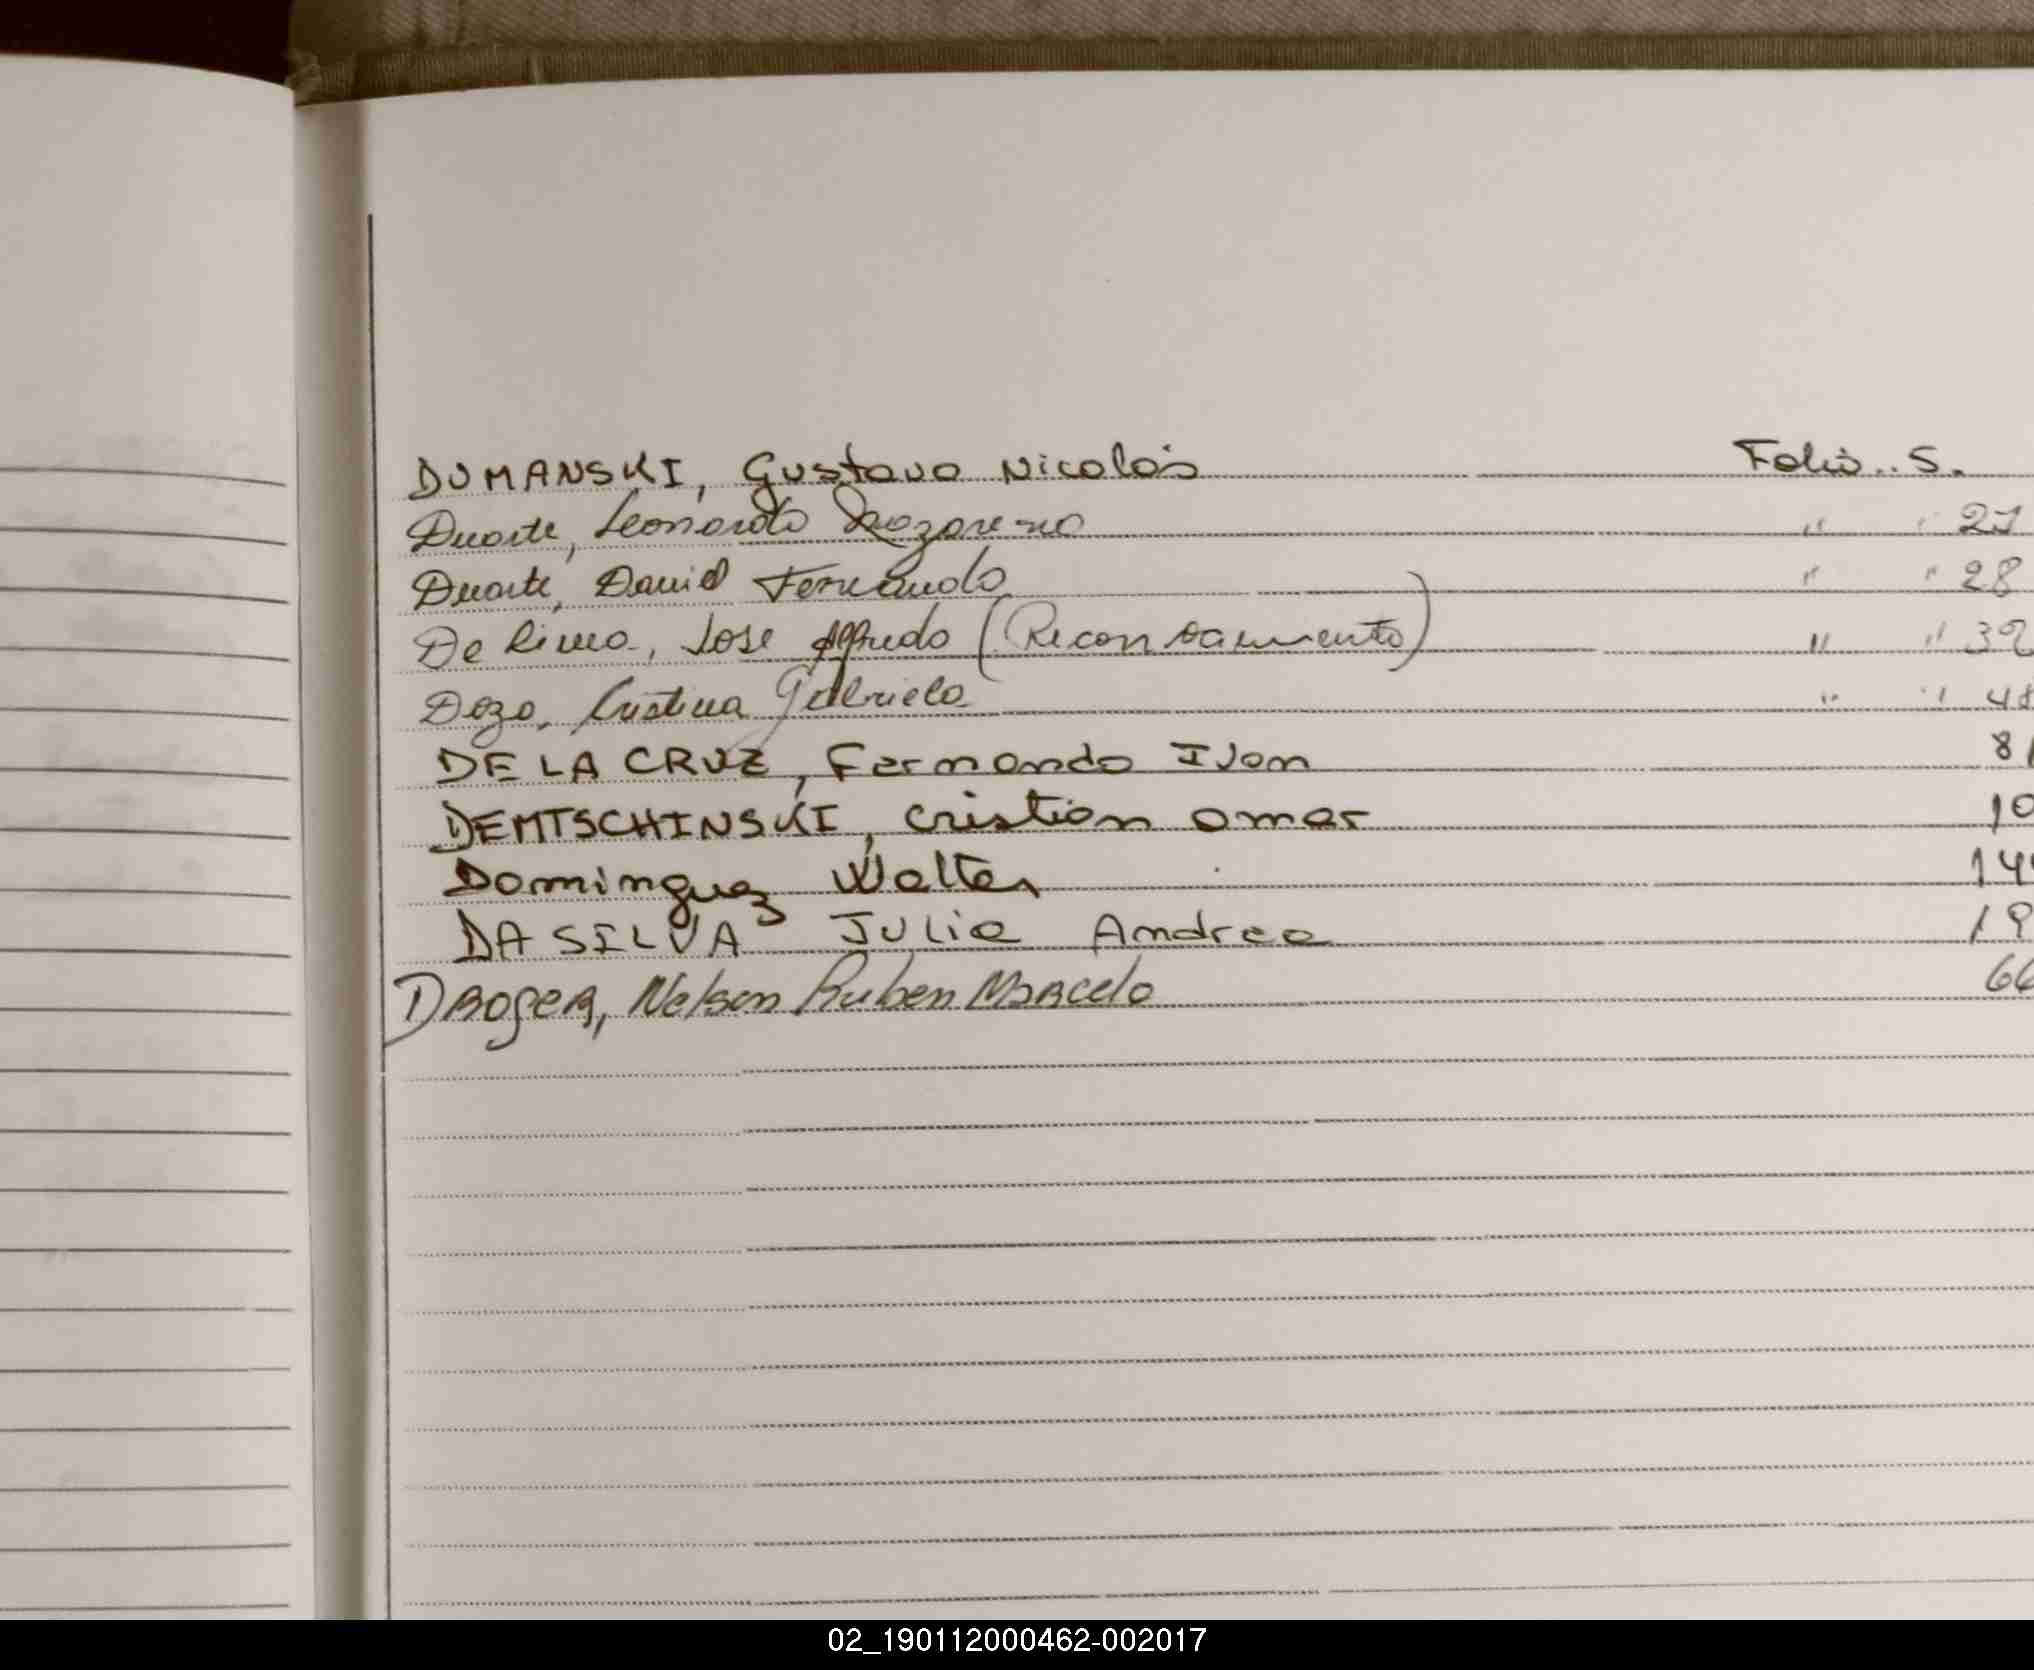 DUMANSKI, Gustavo Nicolás Folio.. 5.
Duarte, Leonardo Nazareno " " 27
Duarte, David Fernando " " 28
De Lima, José Alfredo (Recon       ) " " 39
Dozo, Cristina Gabriela " "
DE LA CRUZ, Fernando Ivan
DEMTSCHINSKI, Cristian Omar
Dominguez Walter
DA SILVA Julia Andrea
DROGER, Nelson Ruben Marcelo
02_190112000462-002017